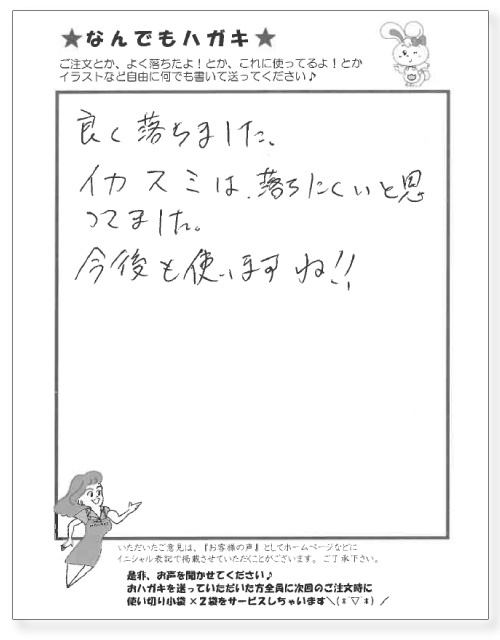 ★なんでもハガキ★
ご注文とか、よく落ちたよ！とか、これに使ってるよ！とか
イラストなど自由に何でも書いて送ってください♪
良く落ちました。
イカスミは、落ちにくいと思
ってました。
今後も使いますね!!
いただいたご意見は、『お客様の声』としてホームページなどに
イニシャル表記で掲載させていただくことがございます。ご了承下さい。
是非、お声を聞かせてください♪
おハガキを送っていただいた方全員に次回のご注文時に
使い切り小袋×2袋をサービスしちゃいます＼(*´▽`*)／